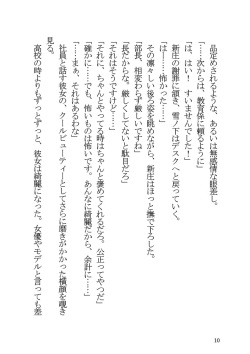 品定めされるような、あるいは無感情な眼差し。
「……次からは、教育係に頼るように」
「は、はい！　すいませんでした！」
新庄の謝罪に頷き、雪ノ下はデスクへと戻っていく。
「は――……怖かった……」
その凛々しい後ろ姿を眺めながら、新庄はほっと撫で下ろした。
「部長、相変わらず厳しいですね」
「長だからな。厳しくしてないと駄目だろ」
「それはそうですけど……」
「それに、ちゃんとやってる時はちゃんと褒めてくれるだろ。公正ってやつだ」
「確かに……でも、怖いものは怖いです。あんなに綺麗だから、余計に……」
「……まぁ、それはあるわな」
社員と話す彼女の、クールビューティーとしてさらに磨きがかかった横顔を覗き
見る。
高校の時よりもずっとずっと、彼女は綺麗になった。女優やモデルと言っても差
10